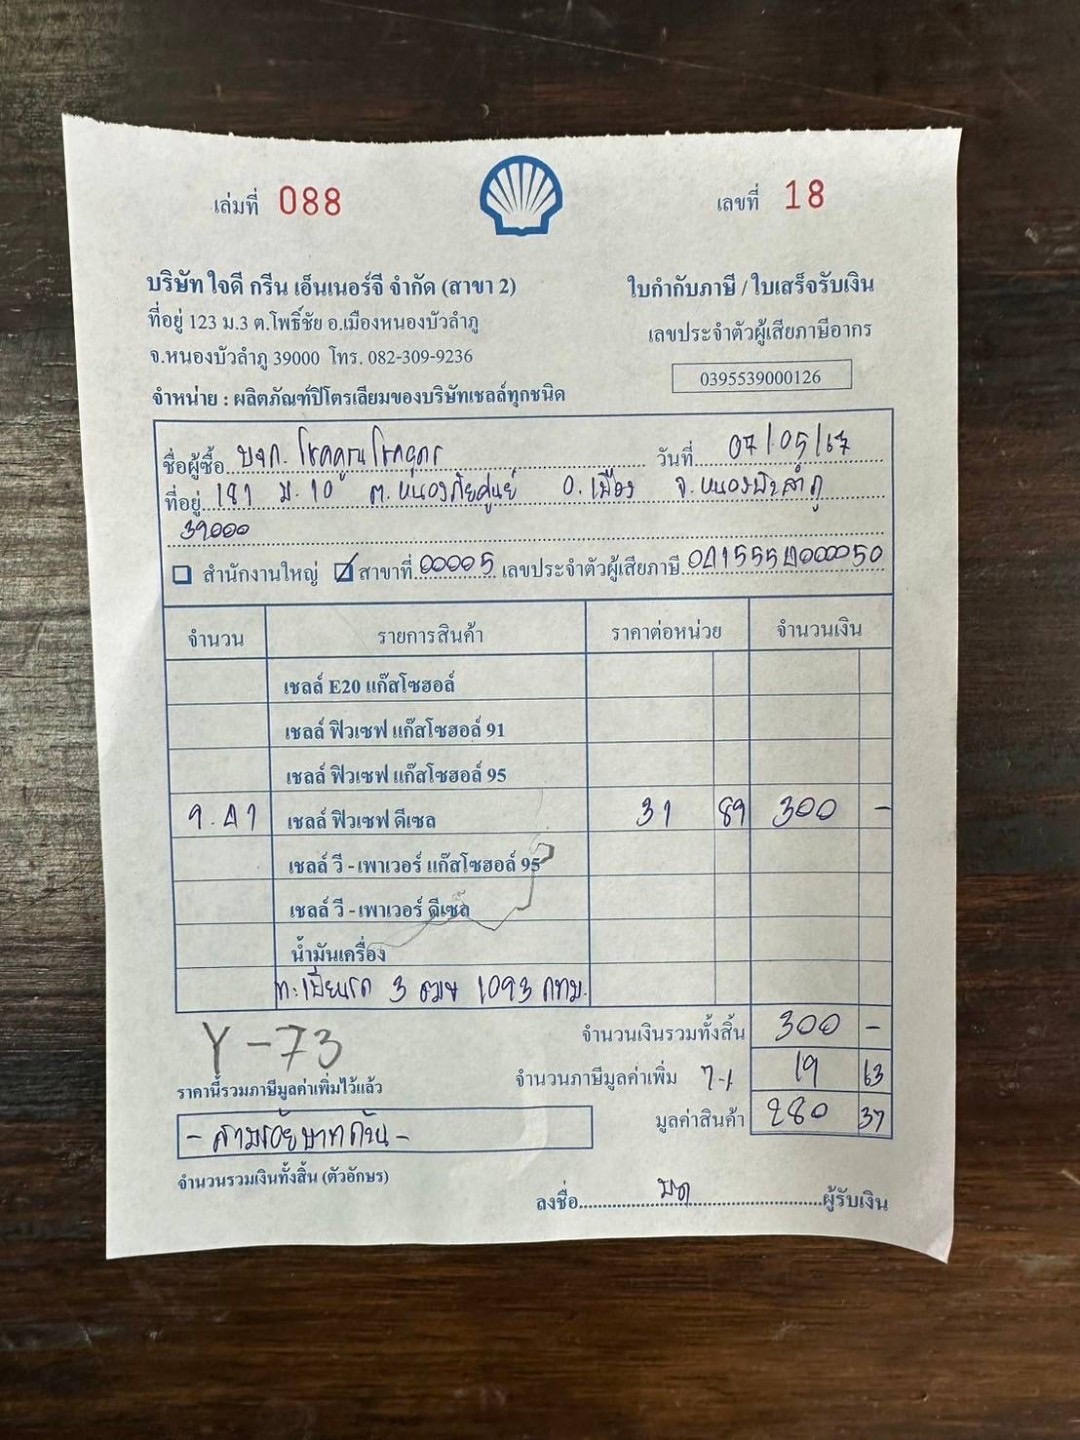 เล่มที่ 088
เลขที่ 18
บริษัท ใจดี กรีน เอ็นเนอร์จี จำกัด (สาขา 2)
ใบกำกับภาษี / ใบเสร็จรับเงิน
ที่อยู่ 123 ม.3 ต.โพธิ์ชัย อ.เมืองหนองบัวลำภู
เลขประจำตัวผู้เสียภาษีอากร
จ.หนองบัวลำภู 39000 โทร. 082-309-9236
0395539000126
จำหน่าย : ผลิตภัณฑ์ปิโตรเลียมของบริษัทเชลล์ทุกชนิด
ชื่อผู้ซื้อ บจก. โชคคูณโชค วันที่ 07/05/67
ที่อยู่ 181 ม.10 ต.หนองภัยศูนย์ อ.เมือง จ.หนองบัวลำภู
39000
สำนักงานใหญ่ ☑ สาขาที่ 00005 เลขประจำตัวผู้เสียภาษี
จำนวน รายการสินค้า ราคาต่อหน่วย จำนวนเงิน
เชลล์ E20 แก๊สโซฮอล์
เชลล์ ฟิวเซฟ แก๊สโซฮอล์ 91
เชลล์ ฟิวเซฟ แก๊สโซฮอล์ 95
9.41 เชลล์ ฟิวเซฟ ดีเซล 31 89 300 -
เชลล์ วี - เพาเวอร์ แก๊สโซฮอล์ 95
เชลล์ วี - เพาเวอร์ ดีเซล
น้ำมันเครื่อง
ทะเบียนรถ 3 ฒษ 1093 กทม.
จำนวนเงินรวมทั้งสิ้น 300 -
Y-73
ราคานี้รวมภาษีมูลค่าเพิ่มไว้แล้ว
จำนวนภาษีมูลค่าเพิ่ม 7% 19 63
มูลค่าสินค้า 280 37
- สามร้อยบาทถ้วน -
จำนวนรวมเงินทั้งสิ้น (ตัวอักษร)
ลงชื่อ มด ผู้รับเงิน